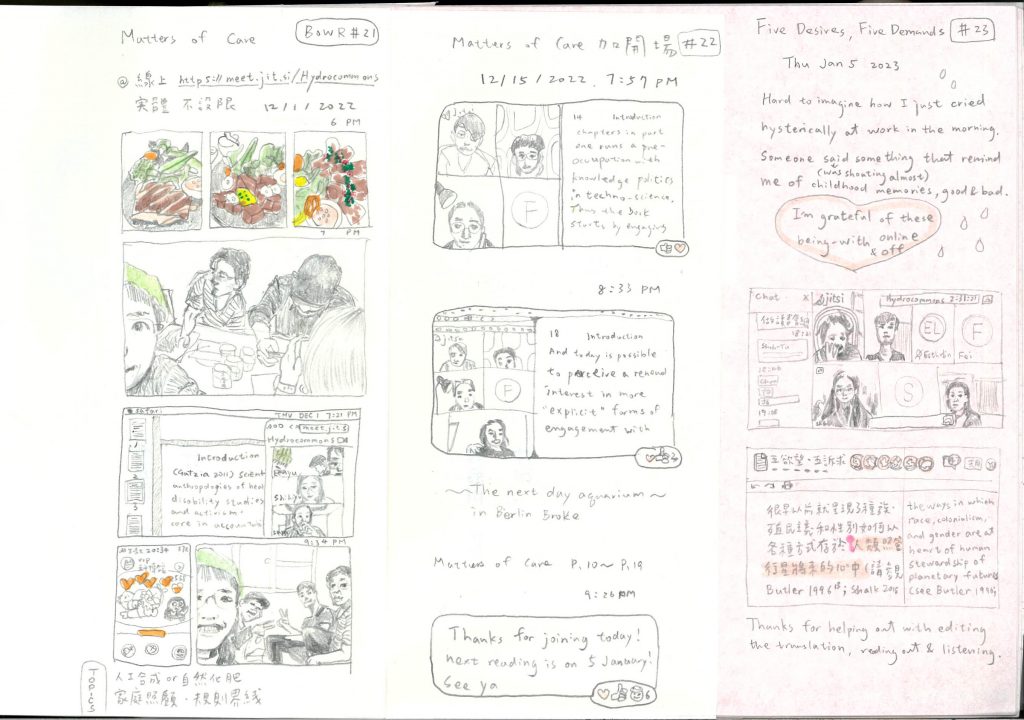 Matters of Care
BOWR #21
@ 線上 https://meet.jit.si/Hydrocommons
實體 不設限 12/1/2022
6 PM
7 PM
safari
THU DEC 1 7:21 PM
meet.jit.s
Hydrocommons
Introduction
(Gatzia 2011) scient
anthropologies of heal
disability studies
and activism.
care in accounting
9:34 PM
TOPICS
人工合成 or 自然化肥
家庭照顧、規則界綫
Matters of Care 加開場 #22
12/15/2022. 7:57 PM
jitsi
14 Introduction
chapters in part
one runs a pre-
occupation with
knowledge politics
in techno-science.
Thus the book
starts by engaging
F
8:33 PM
Jitsi
18 Introduction
And today is possible
to perceive a renewed
interest in more
"explicit" forms of
engagement with
F
3
~The next day aquarium~
in Berlin Broke
Matters of Care P.10~ P.19
9:26 PM
Thanks for joining today!
next reading is on 5 January!
See ya
6
Five Desires, Five Demands #23
Thu Jan 5 2023
Hard to imagine how I just cried
hysterically at work in the morning.
Someone said something that remind
(was shouting almost)
me of childhood memories, good & bad.
I'm grateful of these
being-with online
& off
Chat x
jitsi
Hydrocommons 2:38:21
EL
F
Fei
S
五欲望、五訴求
很早以前就呈現了種族、
殖民主義和性別如何以
各種方式存於人類照管
行星將來的心中(請參見
Butler 1996; Shalk 2018
the ways in which
race, colonialism,
and gender are at
heart of human
stewardship of
planetary future
(see Butler 1996)
Thanks for helping out with editing
the translation, reading out & listening.